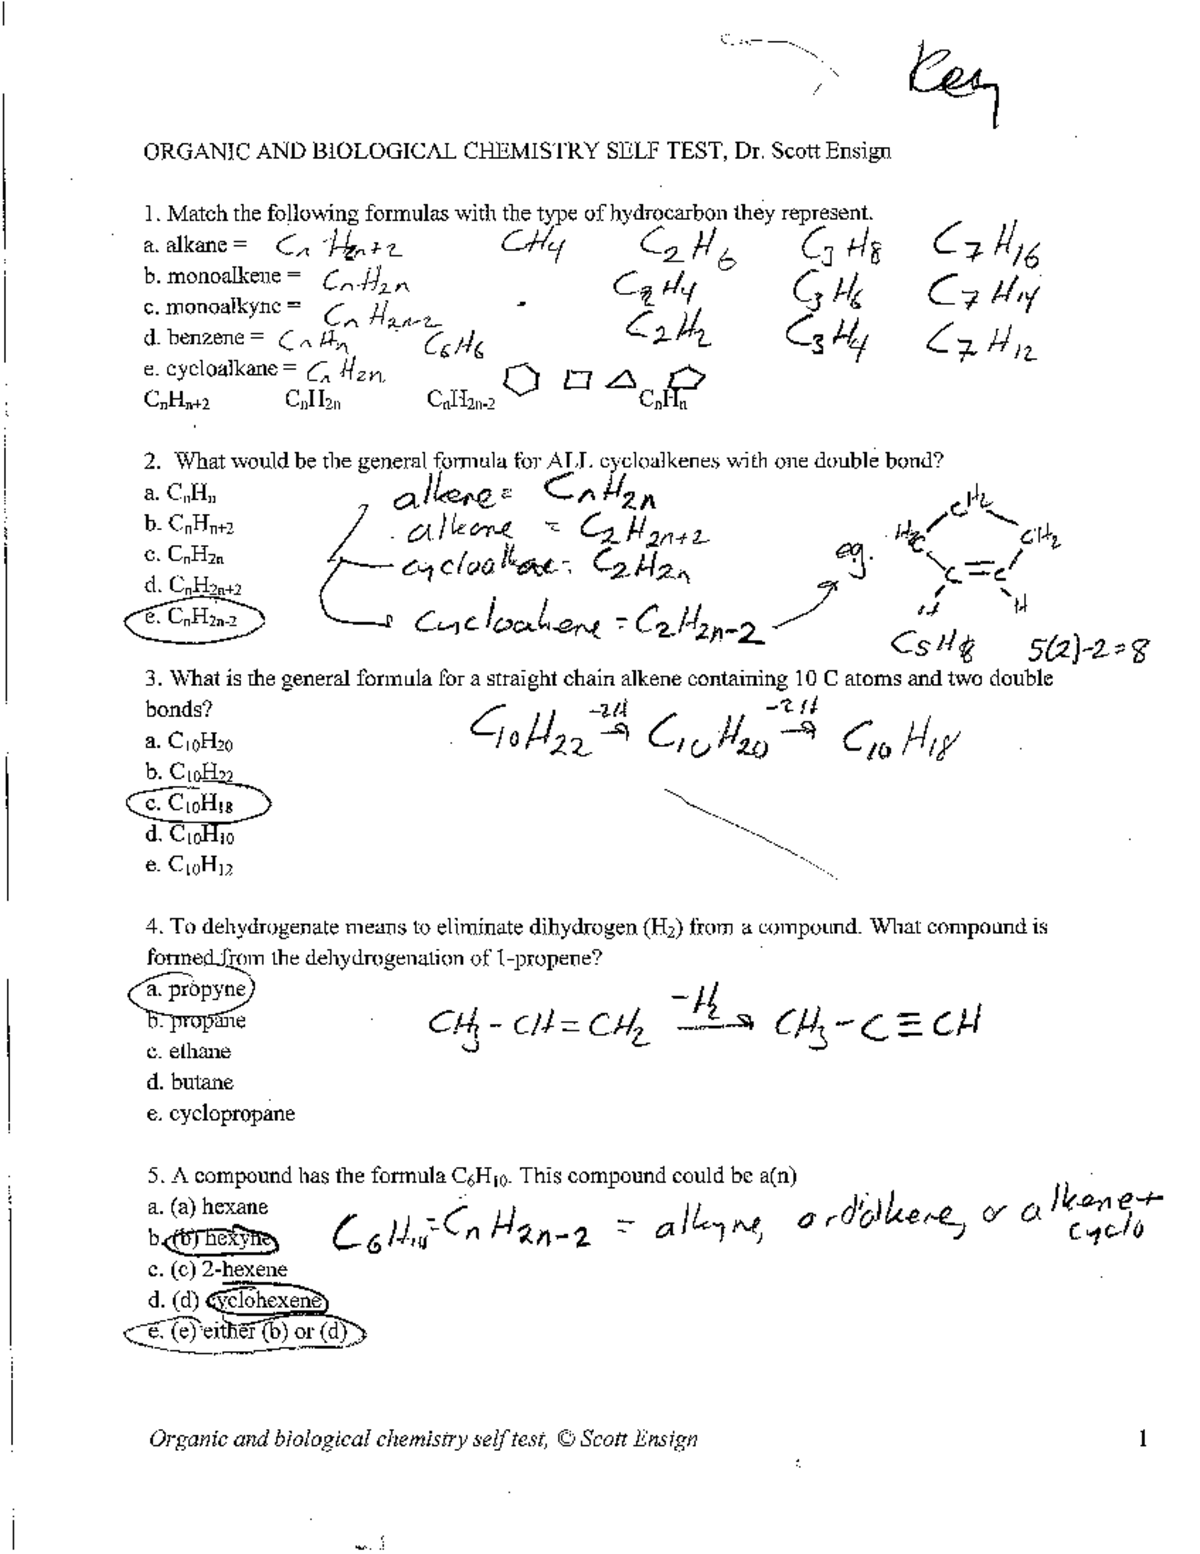 Key
ORGANIC AND BIOLOGICAL CHEMISTRY SELF TEST, Dr. Scott Ensign
1. Match the following formulas with the type of hydrocarbon they represent.
a. alkane = CnH2n+2 CH4 C2H6 C3H8 C7H16
b. monoalkene = CnH2n C2H4 C3H6 C7H14
c. monoalkyne = CnH2n-2 C2H2 C3H4 C7H12
d. benzene = CnHn C6H6
e. cycloalkane = CnH2n
CnHn+2 CnH2n CnH2n-2 CnHn
2. What would be the general formula for ALL cycloalkenes with one double bond?
a. CnHn alkene = CnH2n
b. CnHn+2 alkane = C2H2n+2
c. CnH2n cycloalkane = C2H2n
d. CnH2n+2
e. CnH2n-2 cycloalkene = C2H2n-2
eg. CH2 H2C CH2 C=C H H
C5H8 5(2)-2=8
3. What is the general formula for a straight chain alkene containing 10 C atoms and two double
bonds?
C10H22 -2H → C10H20 -2H → C10H18
a. C10H20
b. C10H22
c. C10H18
d. C10H10
e. C10H12
4. To dehydrogenate means to eliminate dihydrogen (H2) from a compound. What compound is
formed from the dehydrogenation of 1-propene?
a. propyne
b. propane CH3-CH=CH2 -H2 → CH3-C≡CH
c. ethane
d. butane
e. cyclopropane
5. A compound has the formula C6H10. This compound could be a(n)
a. (a) hexane
b. (b) hexyne C6H10=CnH2n-2 = alkyne, or dialkene, or alkene + cyclo
c. (c) 2-hexene
d. (d) cyclohexene
e. (e) either (b) or (d)
Organic and biological chemistry self test, © Scott Ensign 1